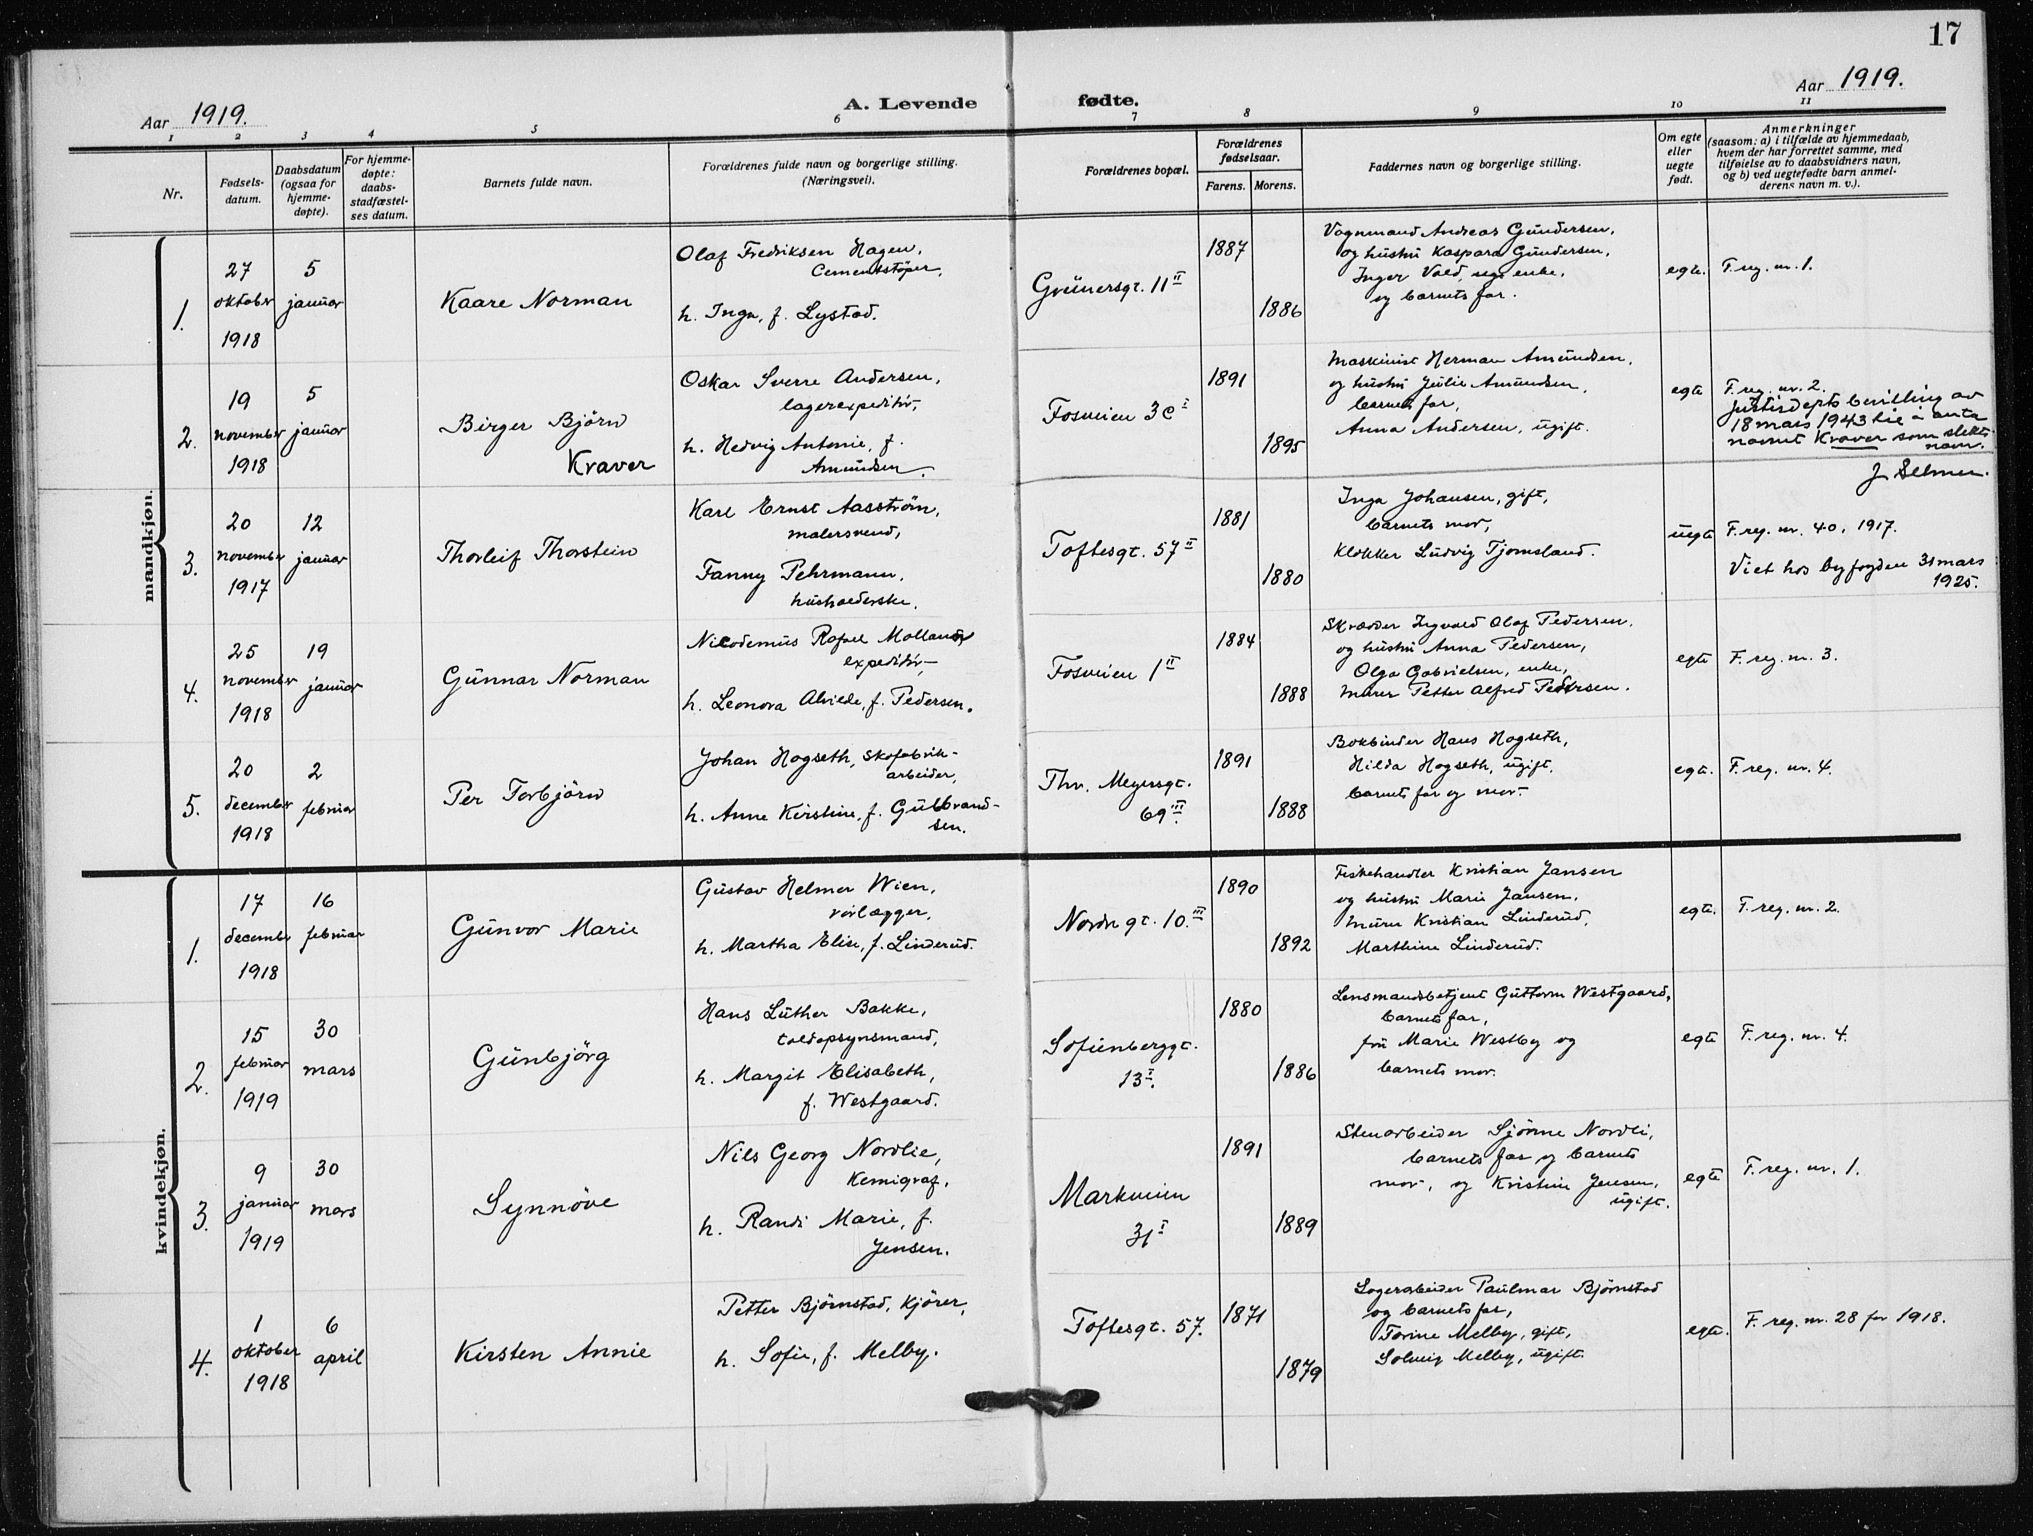 17
Aar 1919.
A. Levende fødte.
Aar 1919.
1 2 3 4 5 6 7 8 9 10 11
Nr.
Fødsels-
datum.
Daabsdatum
(ogsaa for
hjemme-
døpte).
For hjemme-
døpte:
daabs-
stadfæstel-
ses datum.
Barnets fulde navn.
Forældrenes fulde navn og borgerlige stilling.
(Næringsvei).
Forældrenes bopæl.
Forældrenes
fødselsaar.
Farens. Morens.
Faddernes navn og borgerlige stilling.
Om egte
eller
uegte
født.
Anmerkninger
(saasom: a) i tilfælde av hjemmedaab,
hvem der har forrettet samme, med
tilføielse av to daabsvidners navn,
og b) ved uegtefødte barn anmel-
derens navn m. v.).
mandkjøn.
1.
27
oktober
1918
5
januar
Kaare Norman
Olaf Fredriksen Hagen,
Cementstøper,
h. Inga, f. Lystad.
Grünersgt. 11 II
1887
1886
Vognmand Andreas Gundersen,
og hustru Kaspara Gundersen,
Inger Vold, enke,
og barnets far.
egte.
F. reg. nr. 1.
2.
19
november
1918
5
januar
Birger Bjørn
Kraver
Oskar Sverre Andersen,
lagerexpeditør,
h. Hedvig Antonie, f.
Amundsen.
Fosveien 3c I
1891
1895
Maskinist Herman Amundsen,
og hustru Julie Amundsen,
barnets far,
Anna Andersen, ugift.
egte
F. reg. nr. 2.
Justisdepts bevilling av
18 mars 1943 til å anta
navnet Kraver som slekts-
navn.
J. Selmer.
3.
20
november
1917
12
januar
Thorleif Thorstein
Karl Ernst Aasström,
malersvend,
Fanny Pehrmann,
husholderske.
Toftesgt. 57 II
1881
1880
Inga Johansen, gift,
barnets mor,
Klokker Ludvig Tjomsland.
uegte
F. reg. nr. 40, 1917.
Viet hos byfogden 31 mars
1925.
4.
25
november
1918
19
januar
Gunnar Norman
Nicodemus Rafael Molland
expeditør,
h. Leonora Alvilde, f. Pedersen.
Fosveien 1 II
1884
1888
Skrædder Ingvald Olaf Pedersen,
og hustru Anna Pedersen,
Olga Gabrielsen, enke,
Murer Petter Alfred Pedersen.
egte
F. reg. nr. 3.
5.
20
december
1918
2
februar
Per Torbjörn
Johan Hogseth, skofabrik-
arbeider,
h. Anne Kirstine, f. Gulbrand-
sen.
Thv. Meyersgt.
69 III.
1891
1888
Bokbinder Hans Hogseth,
Hilda Hogseth, ugift,
barnets far og mor.
egte.
F. reg. nr. 4.
kvindekjøn.
1.
17
december
1918
16
februar
Gunvor Marie
Gustav Helmer Wien,
rørlægger,
h. Martha Elise, f. Linderud.
Nordre gt. 10. III
1890
1892
Fiskehandler Kristian Jansen
og hustru Marie Jansen,
murer Kristian Linderud,
Marthine Linderud.
egte.
F. reg. nr. 2.
2.
15
februar
1919
30
mars
Gunbjörg
Hans Luther Bakke,
toldopsynsmand,
h. Margit Elisabeth,
f. Westgaard.
Sofienberggt.
13 I.
1880
1886
Lensmandsbetjent Guttorm Westgaard,
barnets far,
fru Marie Westby og
barnets mor.
egte
F. reg. nr. 4.
3.
9
januar
1919
30
mars
Synnöve
Nils Georg Nordlie,
Kemigraf,
h. Randi Marie, f.
Jensen.
Markveien
31 I
1891
1889
Stenarbeider Sjönne Nordli,
barnets far og barnets
mor, og Kristine Jensen,
ugift.
egte
F. reg. nr. 1.
4.
1
oktober
1918
6
april
Kirsten Annie
Petter Björnstad, kjörer,
h. Sofie, f. Melby.
Toftesgt. 57.
1871
1879
Lagerarbeider Paulmar Björnstad
og barnets far,
Torine Melby, gift,
Solveig Melby, ugift.
egte.
F. reg. nr. 28 for 1918.